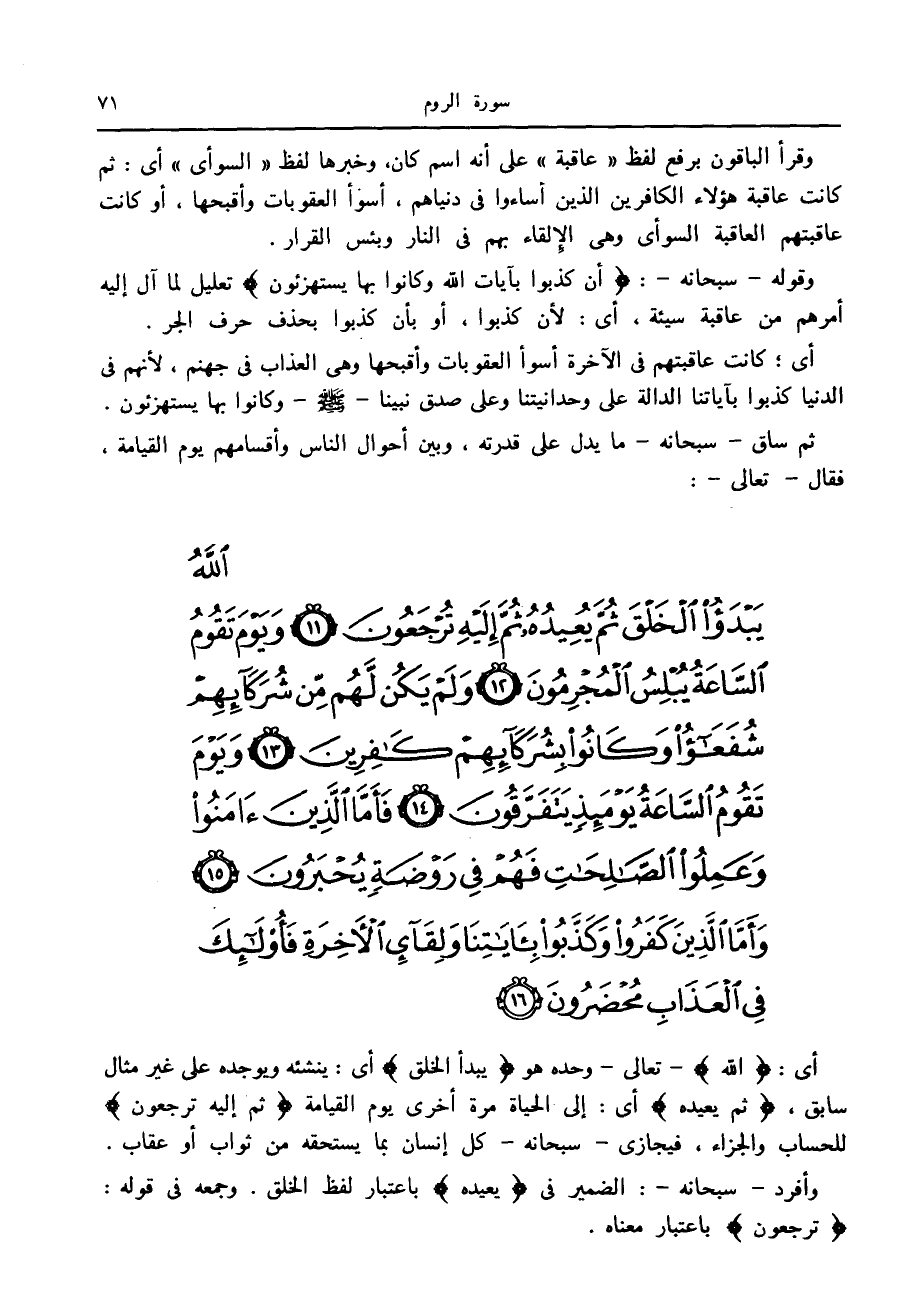 سورة الروم ٧١
وقرأ الباقون برفع لفظ « عاقبة » على أنه اسم كان، وخبرها لفظ « السوأى » أى : ثم
كانت عاقبة هؤلاء الكافرين الذين أساءوا فى دنياهم ، أسوأ العقوبات وأقبحها ، أو كانت
عاقبتهم العاقبة السوأى وهى الإلقاء بهم فى النار وبئس القرار .
وقوله – سبحانه – : ﴿ أن كذبوا بآيات الله وكانوا بها يستهزئون ﴾ تعليل لما آل إليه
أمرهم من عاقبة سيئة ، أى : لأن كذبوا ، أو بأن كذبوا بحذف حرف الجر .
أى ؛ كانت عاقبتهم فى الآخرة أسوأ العقوبات وأقبحها وهى العذاب فى جهنم ، لأنهم فى
الدنيا كذبوا بآياتنا الدالة على وحدانيتنا وعلى صدق نبينا – ﷺ – وكانوا بها يستهزئون .
ثم ساق – سبحانه – ما يدل على قدرته ، وبين أحوال الناس وأقسامهم يوم القيامة ،
فقال – تعالى – :
ٱللَّهُ
يَبْدَؤُا۟ ٱلْخَلْقَ ثُمَّ يُعِيدُهُۥ ثُمَّ إِلَيْهِ تُرْجَعُونَ ١١ وَيَوْمَ تَقُومُ
ٱلسَّاعَةُ يُبْلِسُ ٱلْمُجْرِمُونَ ١٢ وَلَمْ يَكُن لَّهُم مِّن شُرَكَآئِهِمْ
شُفَعَٰٓؤُا۟ وَكَانُوا۟ بِشُرَكَآئِهِمْ كَٰفِرِينَ ١٣ وَيَوْمَ
تَقُومُ ٱلسَّاعَةُ يَوْمَئِذٍ يَتَفَرَّقُونَ ١٤ فَأَمَّا ٱلَّذِينَ ءَامَنُوا۟
وَعَمِلُوا۟ ٱلصَّٰلِحَٰتِ فَهُمْ فِى رَوْضَةٍ يُحْبَرُونَ ١٥
وَأَمَّا ٱلَّذِينَ كَفَرُوا۟ وَكَذَّبُوا۟ بِـَٔايَٰتِنَا وَلِقَآئِ ٱلْأَخِرَةِ فَأُو۟لَٰٓئِكَ
فِى ٱلْعَذَابِ مُحْضَرُونَ ١٦
أى : ﴿ الله ﴾ – تعالى – وحده هو ﴿ يبدأ الخلق ﴾ أى : ينشئه ويوجده على غير مثال
سابق ، ﴿ ثم يعيده ﴾ أى : إلى الحياة مرة أخرى يوم القيامة ﴿ ثم إليه ترجعون ﴾
للحساب والجزاء ، فيجازى – سبحانه – كل إنسان بما يستحقه من ثواب أو عقاب .
وأفرد – سبحانه – : الضمير فى ﴿ يعيده ﴾ باعتبار لفظ الخلق . وجمعه فى قوله :
﴿ ترجعون ﴾ باعتبار معناه .